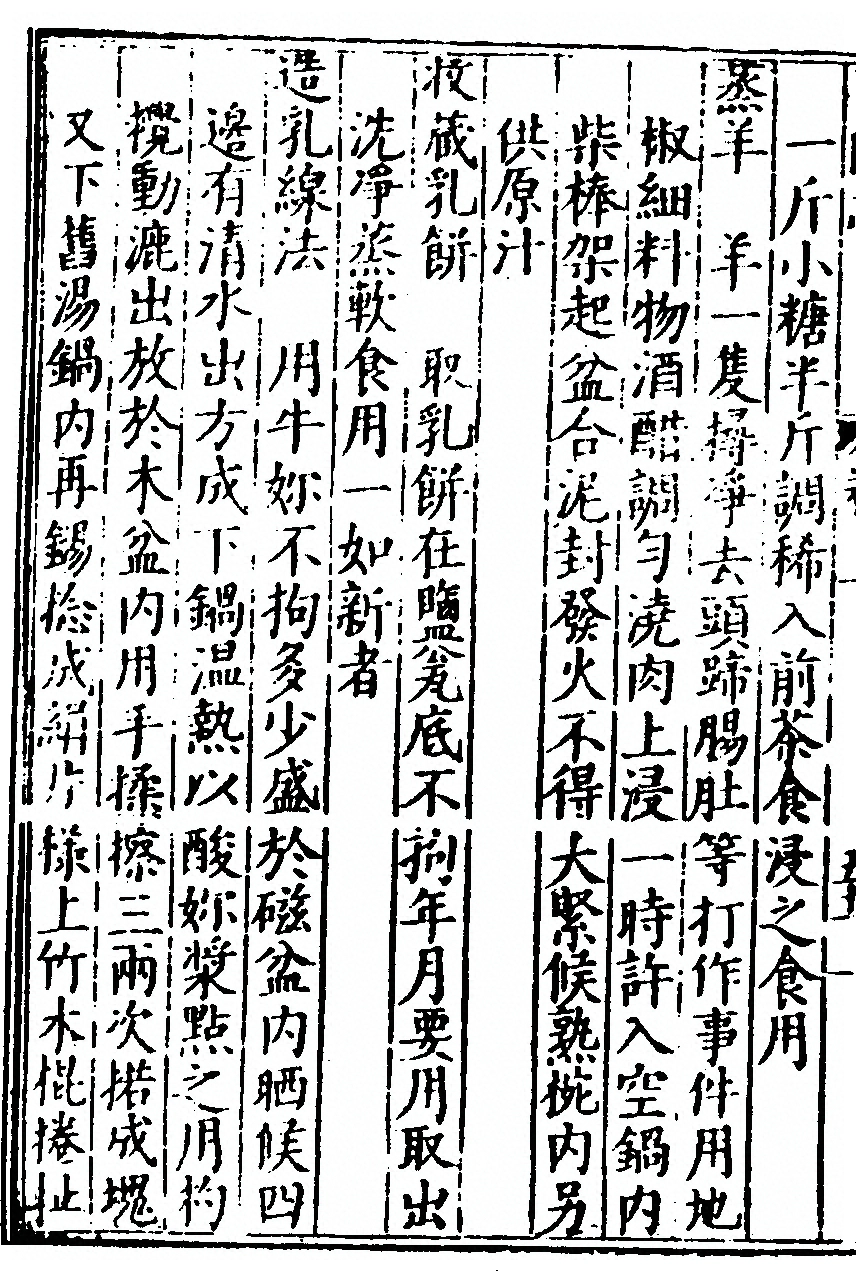 一斤小糖半斤調稀入前茶食浸之食用
蒸羊 羊一隻撏淨去頭蹄腸肚等打作事件用地
椒細料物酒醋調勻澆肉上浸一時許入空鍋内
柴棒架起盆合泥封發火不得大緊候熟椀内另
供原汁
收藏乳餅 取乳餅在鹽瓮底不捌年月要用取出
洗淨蒸軟食用一如新者
造乳線法 用牛妳不拘多少盛於磁盆内晒候四
邉有清水出方成下鍋温熱以酸妳漿點之用杓
攪動漉出放於木盆内用手揉擦三兩次搭成塊
又下舊湯鍋内再錫捻成絹片様上竹木棍捲扯